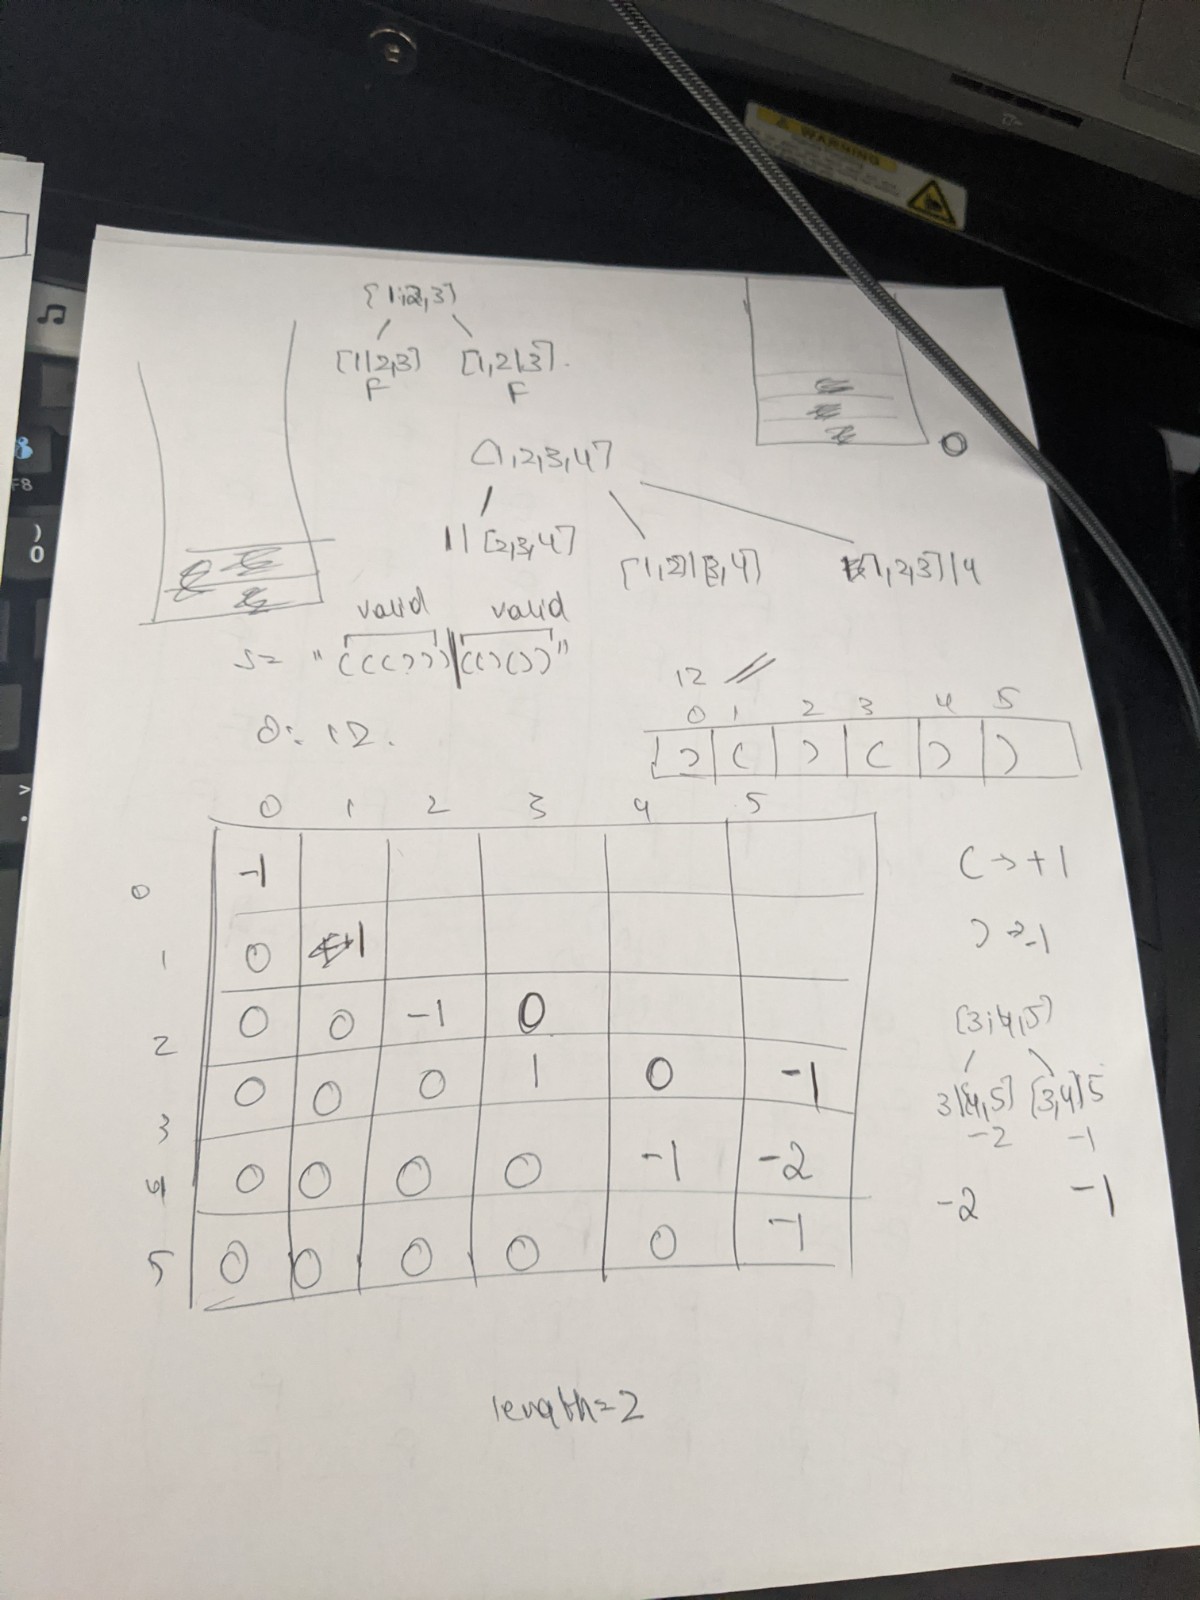 WARNING
F8
)
0
>
.
{1,2,3}
[1|2,3] [1,2|3].
F F
[1,2,3,4]
1| [2,3,4]
[1,2|3,4]
[1,2,3]|4
valid valid
s= "((()))|(()())"
O: 12.
12 //
0 1 2 3 4 5
) ( ) ( ) )
0 1 2 3 4 5
0 -1
1 0 1
2 0 0 -1 0
3 0 0 0 1 0 -1
4 0 0 0 0 -1 -2
5 0 0 0 0 0 -1
( → +1
) → -1
[3,4,5]
3|[4,5] [3,4]|5
-2 -1
-2 -1
length=2